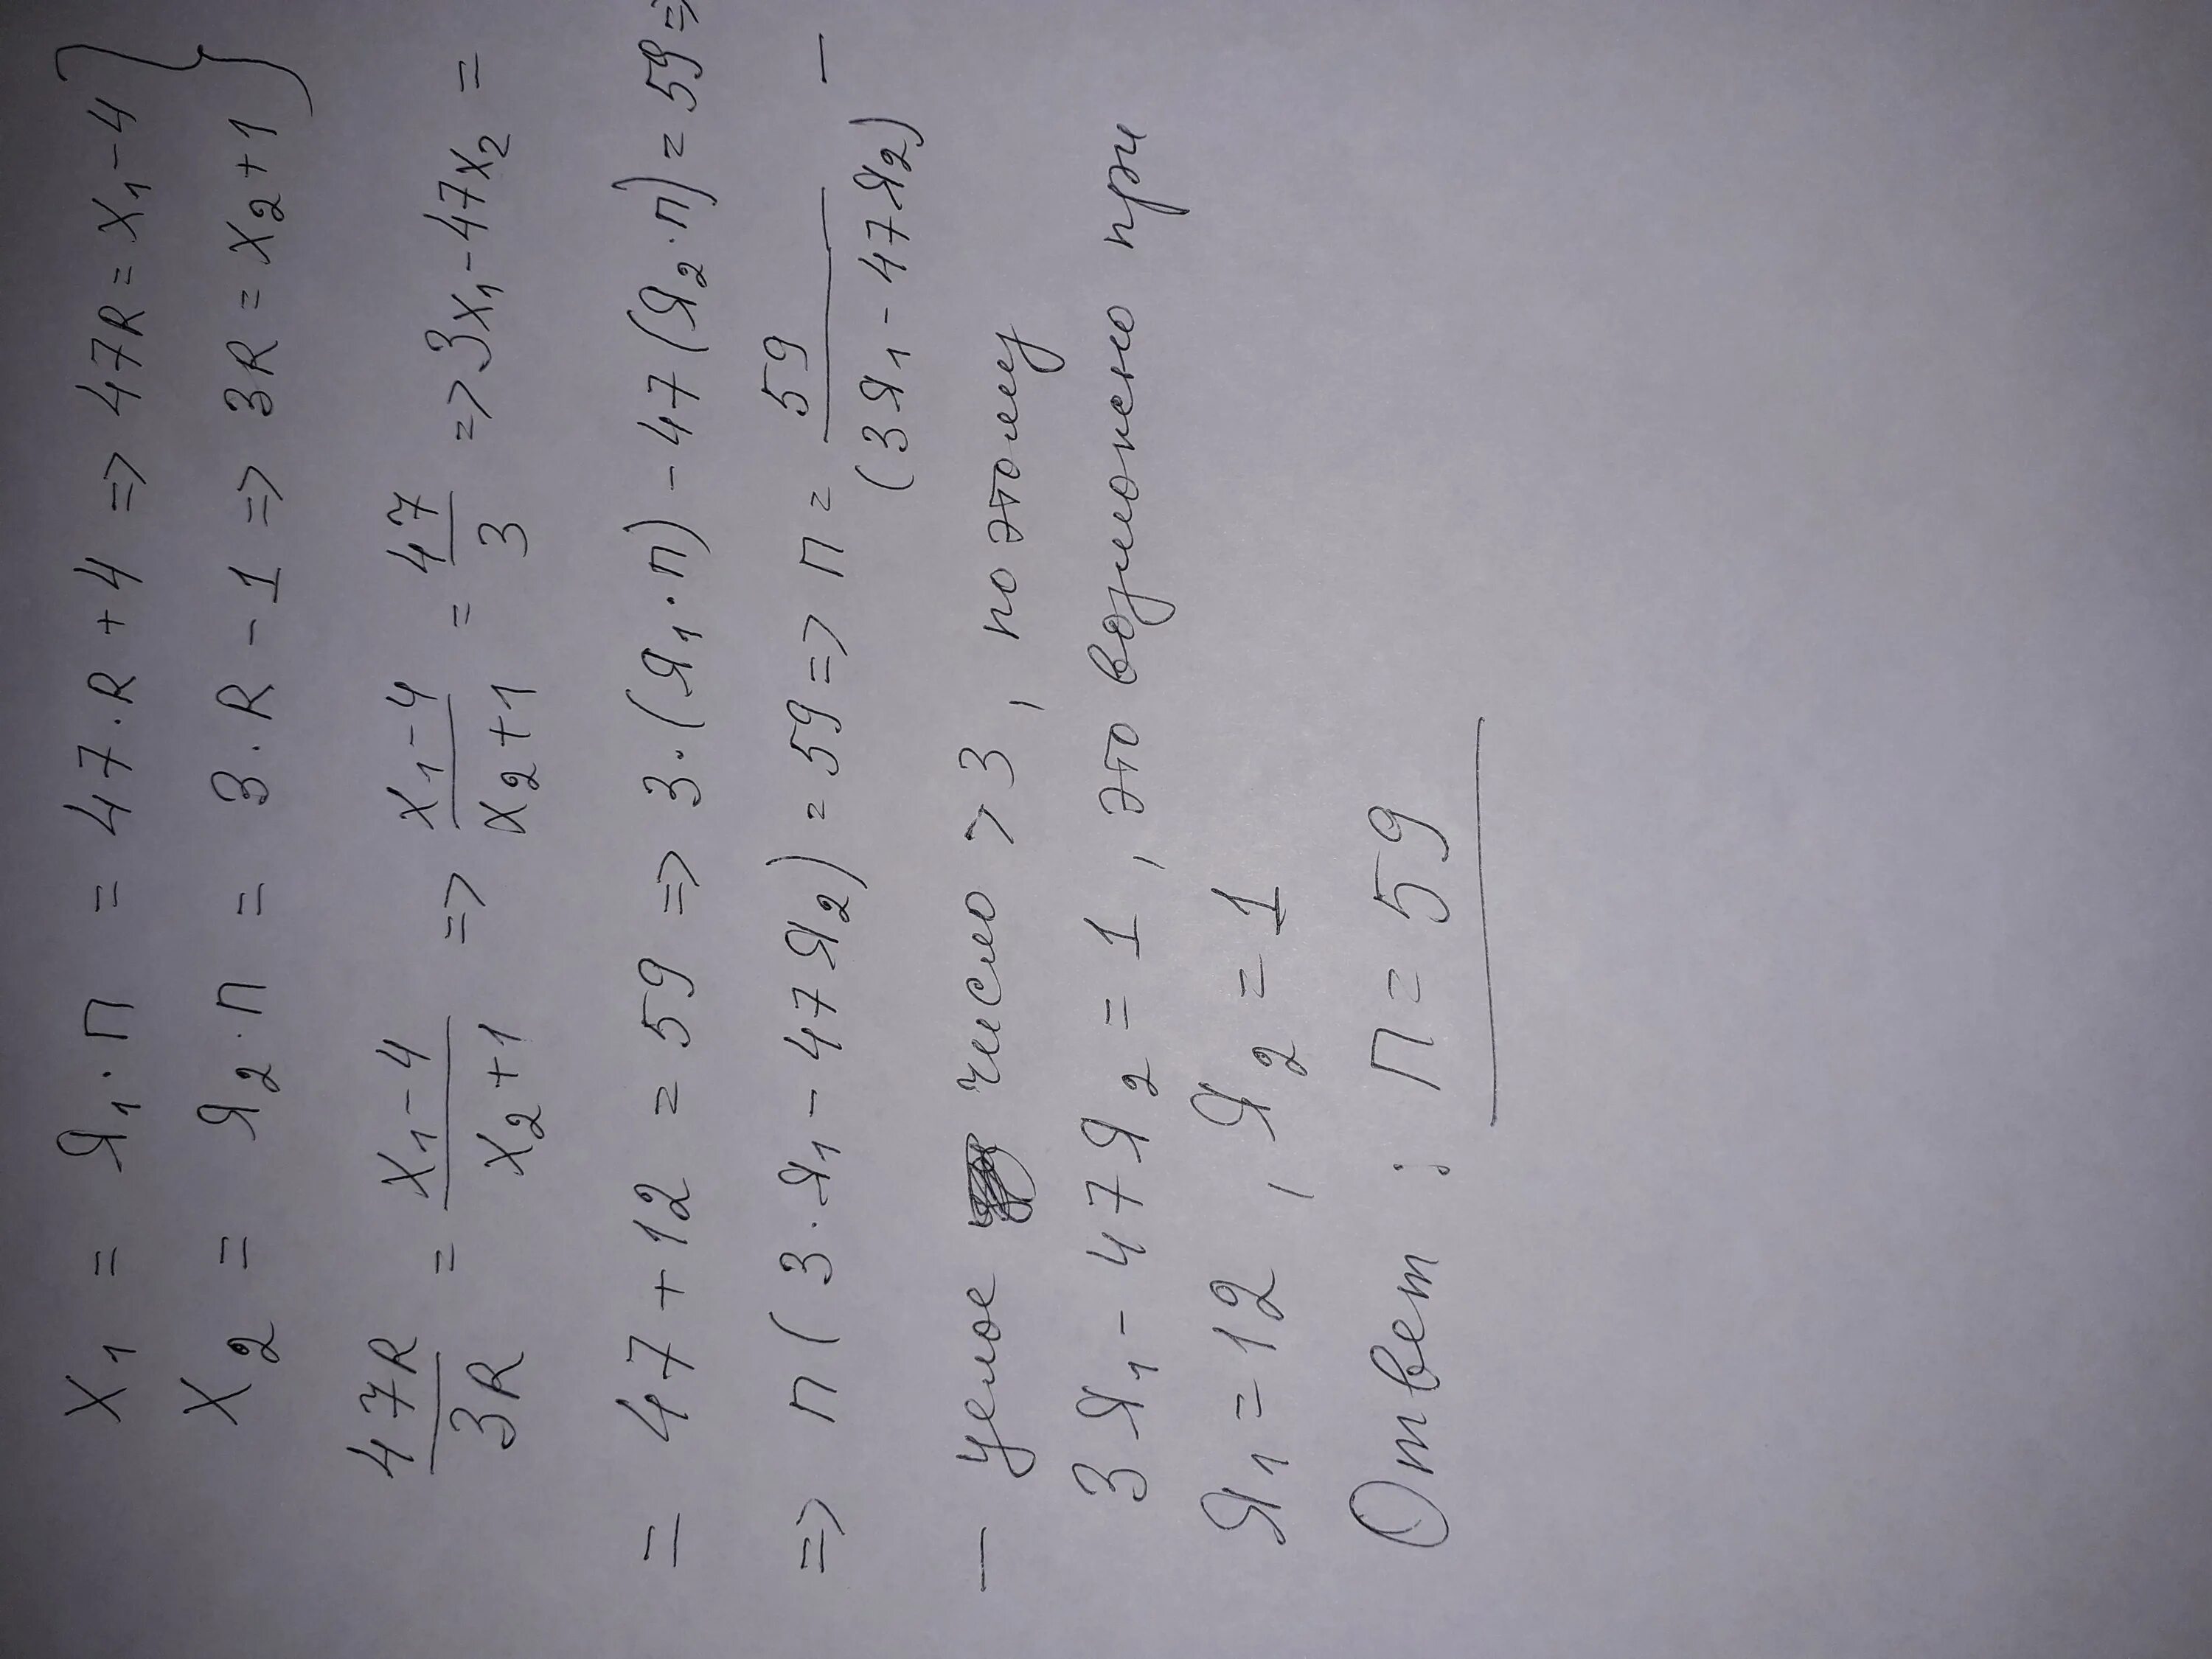 X₁ = Я₁·П = 47·R + 4 => 47R = X₁ - 4 }
X₂ = Я₂·П = 3·R - 1 => 3R = X₂ + 1 }
47R/3R = (X₁ - 4)/(X₂ + 1) => (X₁ - 4)/(X₂ + 1) = 47/3 => 3X₁ - 47X₂ =
= 47 + 12 = 59 => 3·(Я₁·П) - 47(Я₂·П) = 59 =>
=> П(3·Я₁ - 47Я₂) = 59 => П = 59/(3Я₁ - 47Я₂) -
- целое число > 3, поэтому
3Я₁ - 47Я₂ = 1, это возможно при
Я₁ = 12, Я₂ = 1
Ответ: П = 59